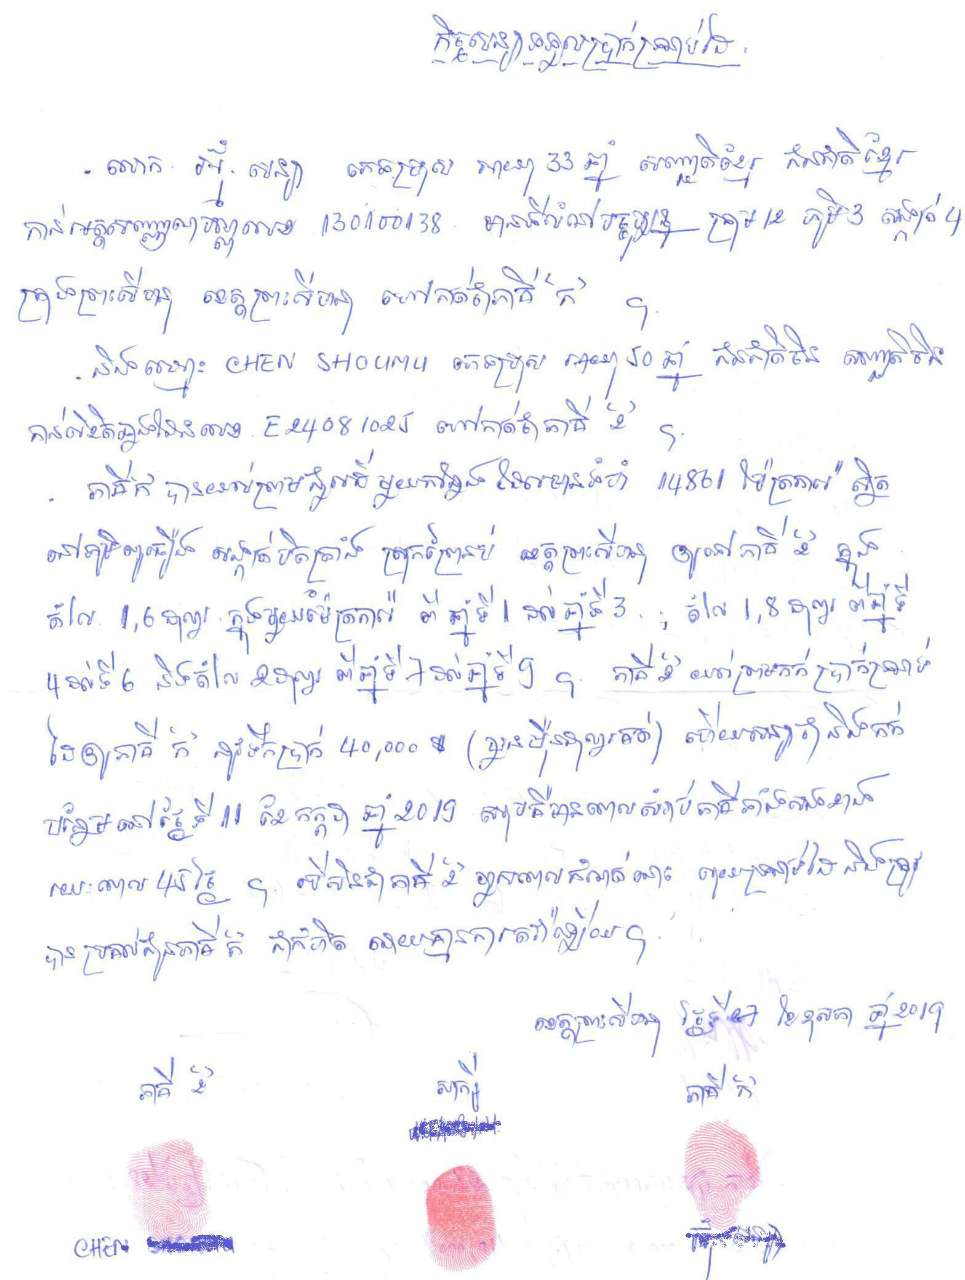 កិច្ចសន្យាទទួលប្រាក់ណាប់ដៃ.
. លោក សន្យា ភេទប្រុស អាយុ 33 ឆ្នាំ សញ្ជាតិខ្មែរ ជនជាតិខ្មែរ
កាន់អត្តសញ្ញាណប័ណ្ណលេខ 130100138. មានទីលំនៅបច្ចុប្បន្ន ក្រុម 12 ភូមិ 3 សង្កាត់ 4
ក្រុងព្រះសីហនុ ខេត្តព្រះសីហនុ ហៅកាត់ថាភាគី "ក" ។
. និងឈ្មោះ CHEN SHOUMU ភេទប្រុស អាយុ 50 ឆ្នាំ ជនជាតិចិន សញ្ជាតិចិន
កាន់លិខិតឆ្លងដែនលេខ E24081025 ហៅកាត់ថាភាគី "ខ" ។
. ភាគី ក បានយល់ព្រមជួលដី មួយកន្លែង ដែលមានទំហំ 14861 ម៉ែត្រការ៉េ ស្ថិត
នៅភូមិ សង្កាត់បិតត្រាំង ស្រុកព្រៃនប់ ខេត្តព្រះសីហនុ ឲ្យទៅភាគី "ខ" ក្នុង
តំលៃ 1,6 ដុល្លារ ក្នុងមួយម៉ែត្រការ៉េ ពី ឆ្នាំទី 1 ដល់ ឆ្នាំទី 3 ; តំលៃ 1,8 ដុល្លារ ពីឆ្នាំទី
4 ដល់ទី 6 និងតំលៃ 2 ដុល្លារ ពីឆ្នាំទី 7 ដល់ឆ្នាំទី 9 ។ ភាគី "ខ" យល់ព្រមកក់ ប្រាក់ណាប់
ដៃឲ្យភាគី "ក" នូវទឹកប្រាក់ 40,000$ (បួនម៉ឺនដុល្លារគត់) ហើយសន្យាថានឹងកក់
បន្ថែមនៅថ្ងៃទី 11 ខែ កក្កដា ឆ្នាំ 2019 សរុបគឺមានពេលសំរាប់ភាគីទាំងសងខាង
រយៈពេល 45 ថ្ងៃ ។ បើសិនជាភាគី "ខ" ខ្វះពេលកំណត់នោះ ប្រាក់ណាប់ដៃ នឹងត្រូវ
បានប្រគល់ជូនភាគី "ក" ជាកំហិត ដោយគ្មានការតវ៉ាឡើយ។
ខេត្តព្រះសីហនុ ថ្ងៃទី 27 ខែ ឧសភា ឆ្នាំ 2019
ភាគី "ខ" សាក្សី ភាគី "ក"
CHEN